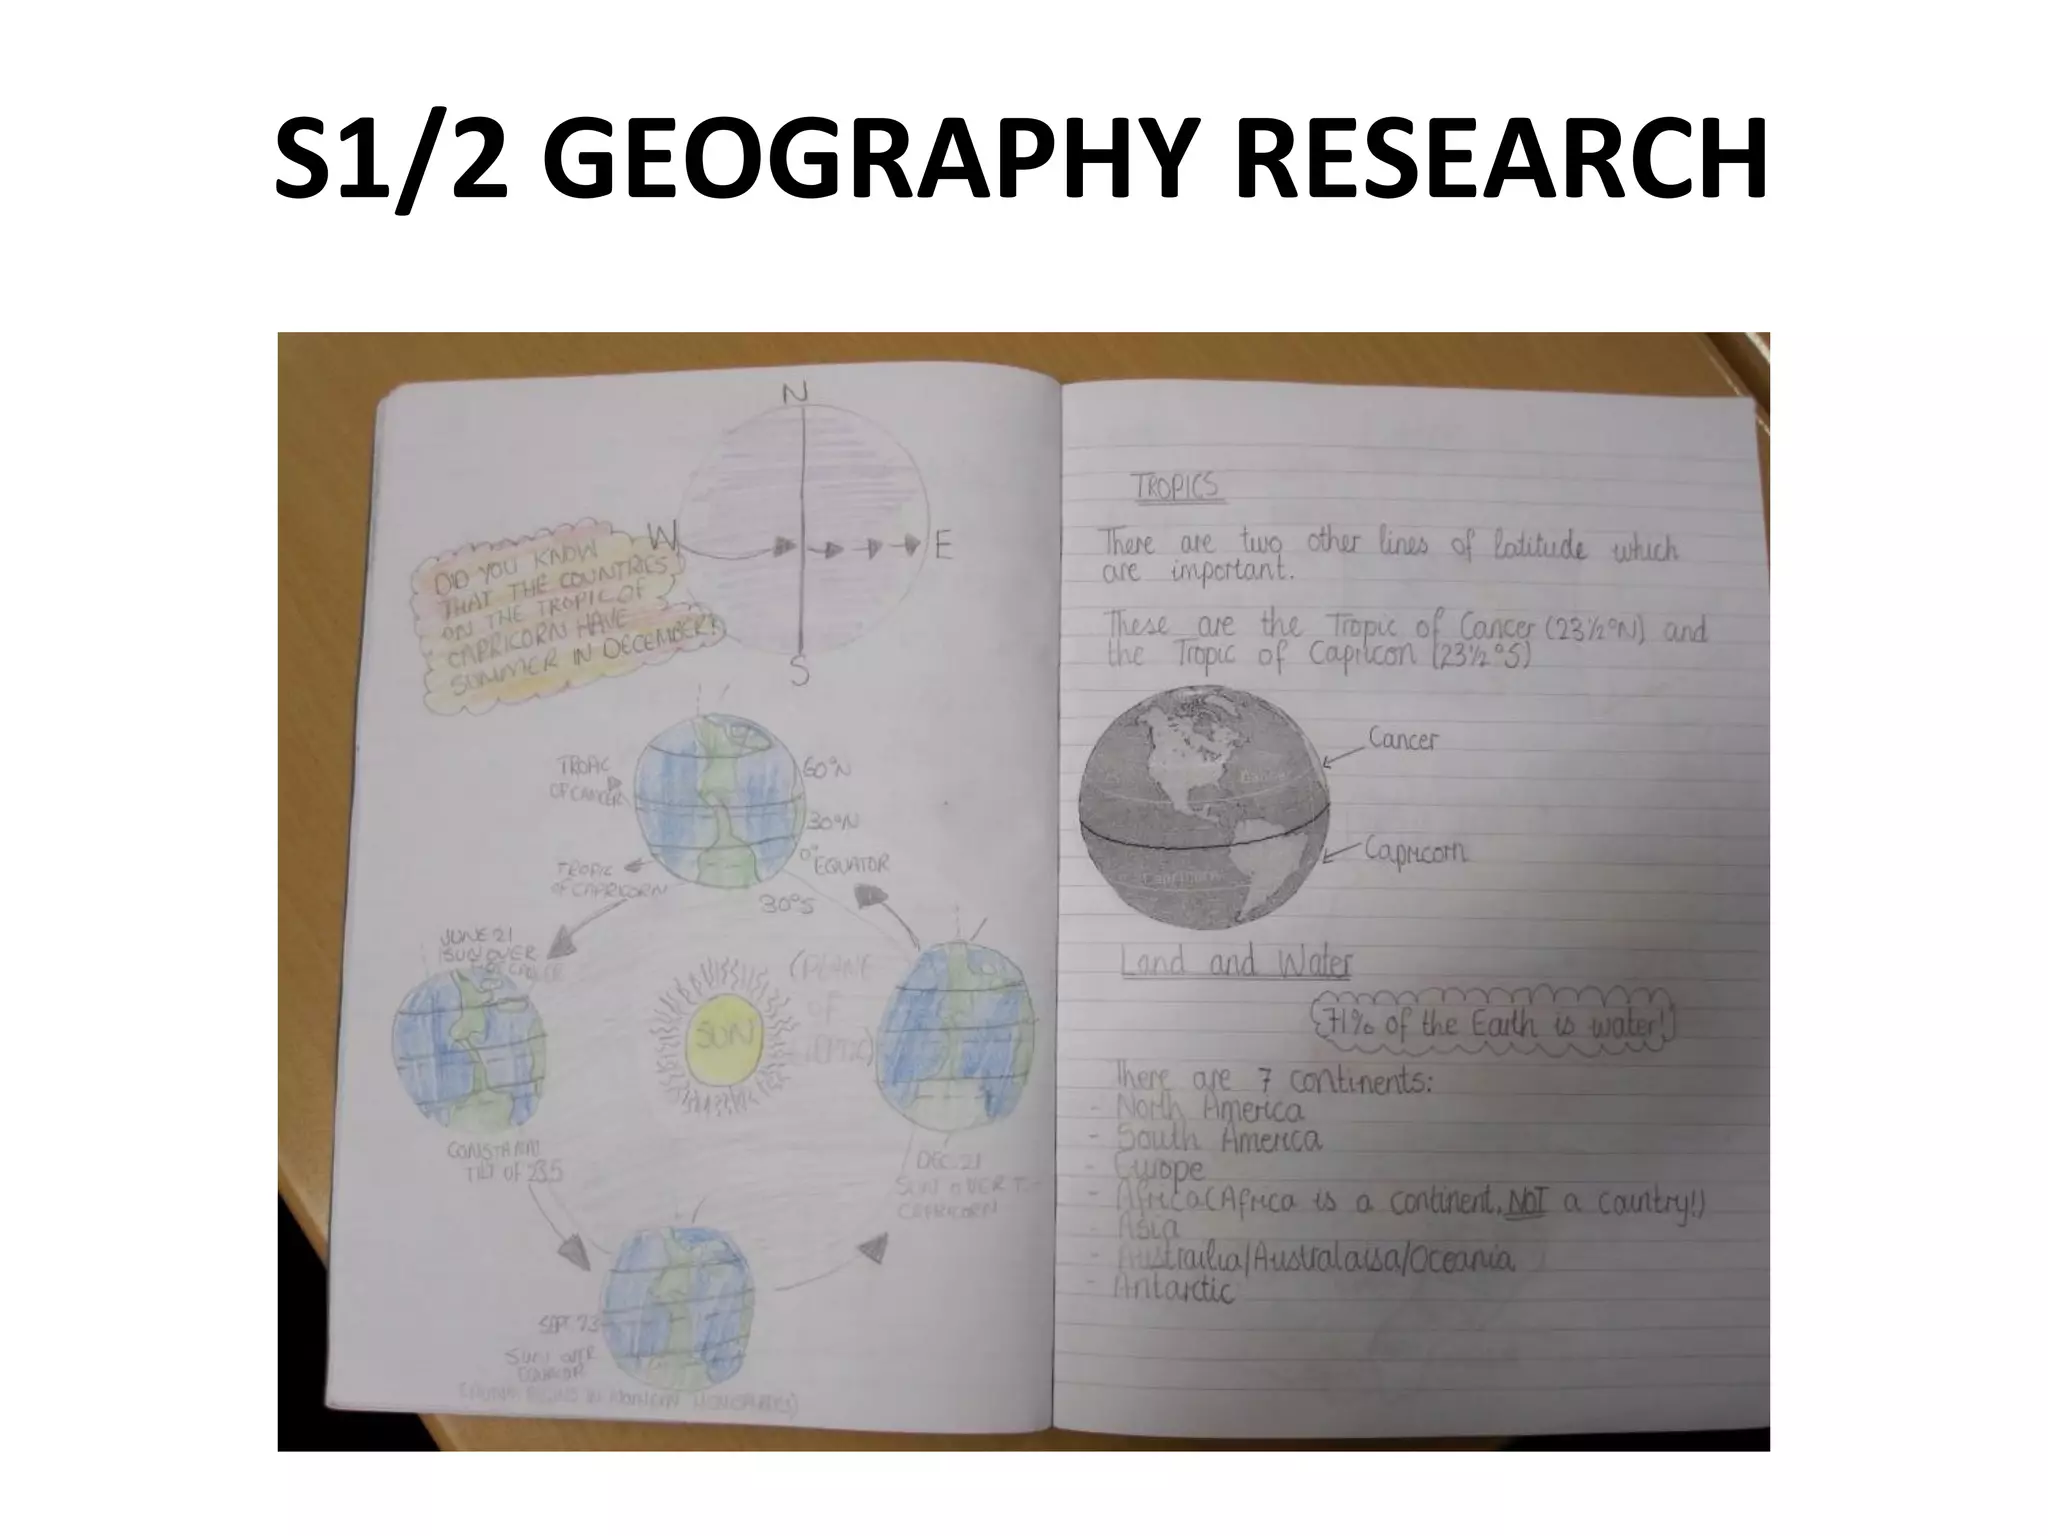 S1/2 GEOGRAPHY RESEARCH
N
W
E
S
DID YOU KNOW
THAT THE COUNTRIES
ON THE TROPIC OF
CAPRICORN HAVE
SUMMER IN DECEMBER!
TROPIC
OF CANCER
60°N
30°N
0°
EQUATOR
TROPIC
OF CAPRICORN
30°S
JUNE 21
SUN OVER
SUN
(PLANE
OF
CONSTANT
TILT OF 23.5
DEC 21
SUN OVER T
CAPRICORN
SEPT 23
SUN OVER
EQUATOR
TROPICS
There are two other lines of latitude which
are important.
These are the Tropic of Cancer (23½°N) and
the Tropic of Capricon (23½°S)
Cancer
Cancer
Capricorn
Capricorn
Land and Water
71% of the Earth is water!
There are 7 continents:
- North America
- South America
- Europe
- Africa (Africa is a continent, NOT a country!)
- Asia
- Austrailia/Australaisa/Oceania
- Antarctic